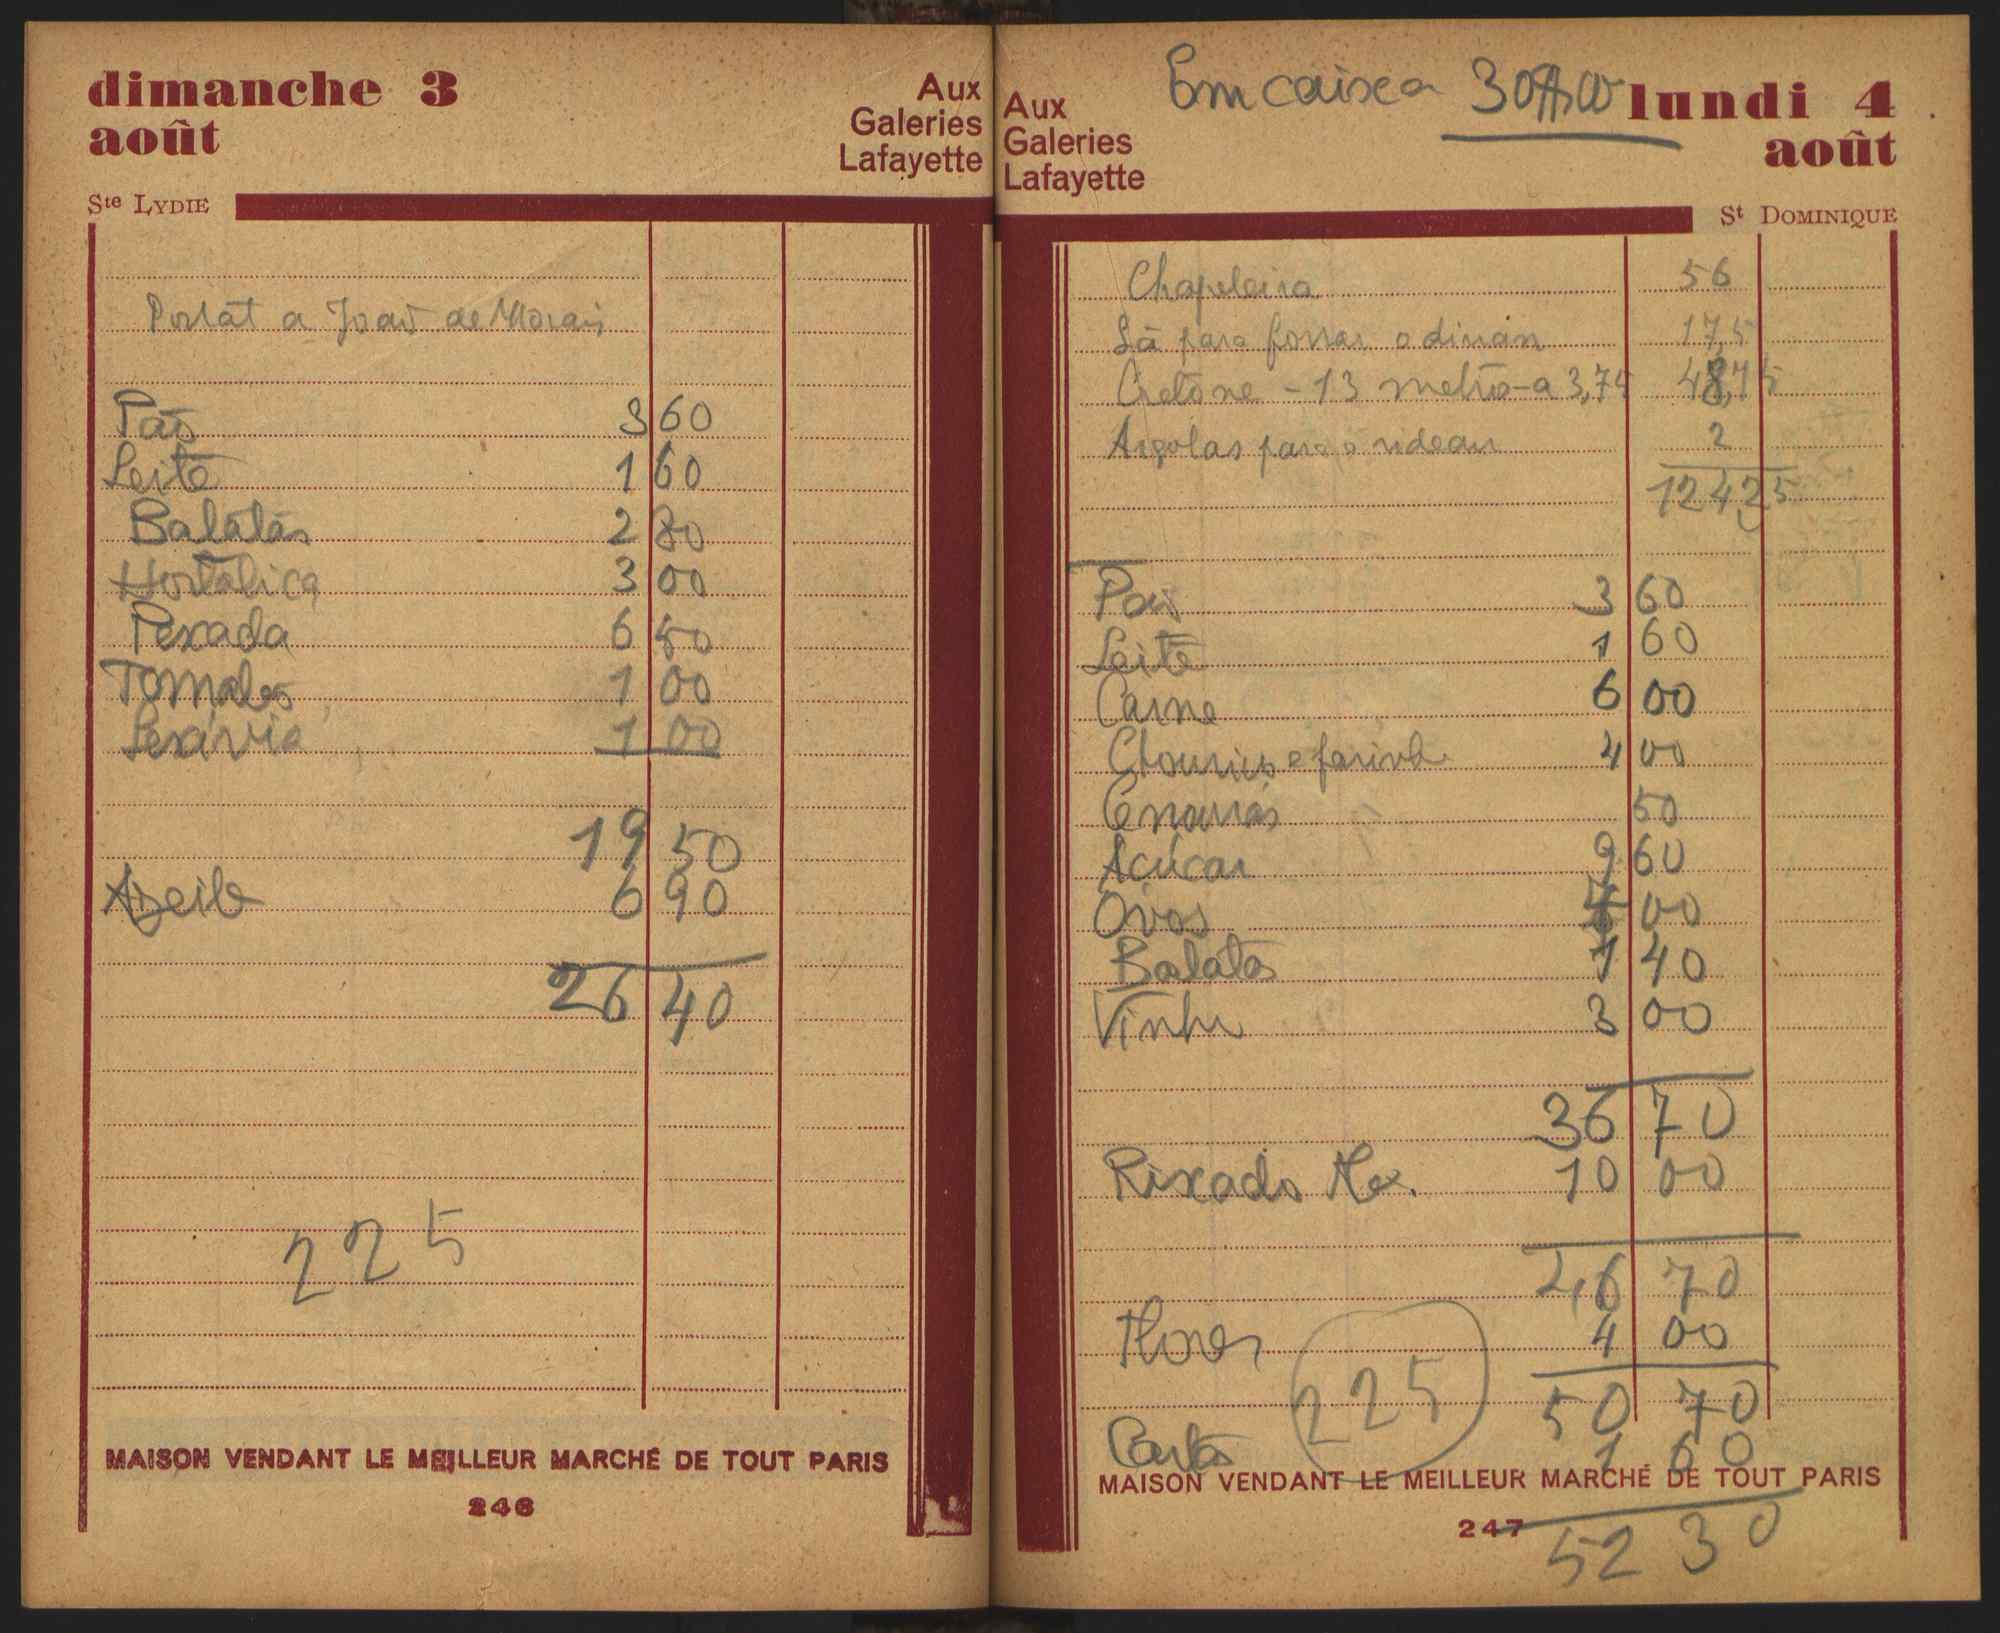 dimanche 3
août
Aux
Galeries
Lafayette
Ste LYDIE
a João de Morais
Pão 3 60
Leite 1 60
Batatas 2 80
Hortaliça 3 00
Pexada 6 50
Tomates 1 00
Lexívia 1 00
19 50
Azeite 6 90
26 40
225
MAISON VENDANT LE MEILLEUR MARCHÉ DE TOUT PARIS
246
Em caixa
lundi 4
août
Aux
Galeries
Lafayette
St DOMINIQUE
Chapeleira 56
Lã para forrar o divan 17,5
Cretone - 13 metros a 3,75 48,75
Argolas para o rideau 2
124,25
Pão 3 60
Leite 1 60
Carne 6 00
Chouriço e farinha 4 00
Cenouras 50
Açúcar 9 60
Ovos 00
Batatas 1 40
Vinho 3 00
36 70
10 00
46 70
Flores 4 00
50 70
225
Cartas 1 60
MAISON VENDANT LE MEILLEUR MARCHÉ DE TOUT PARIS
247
52 30